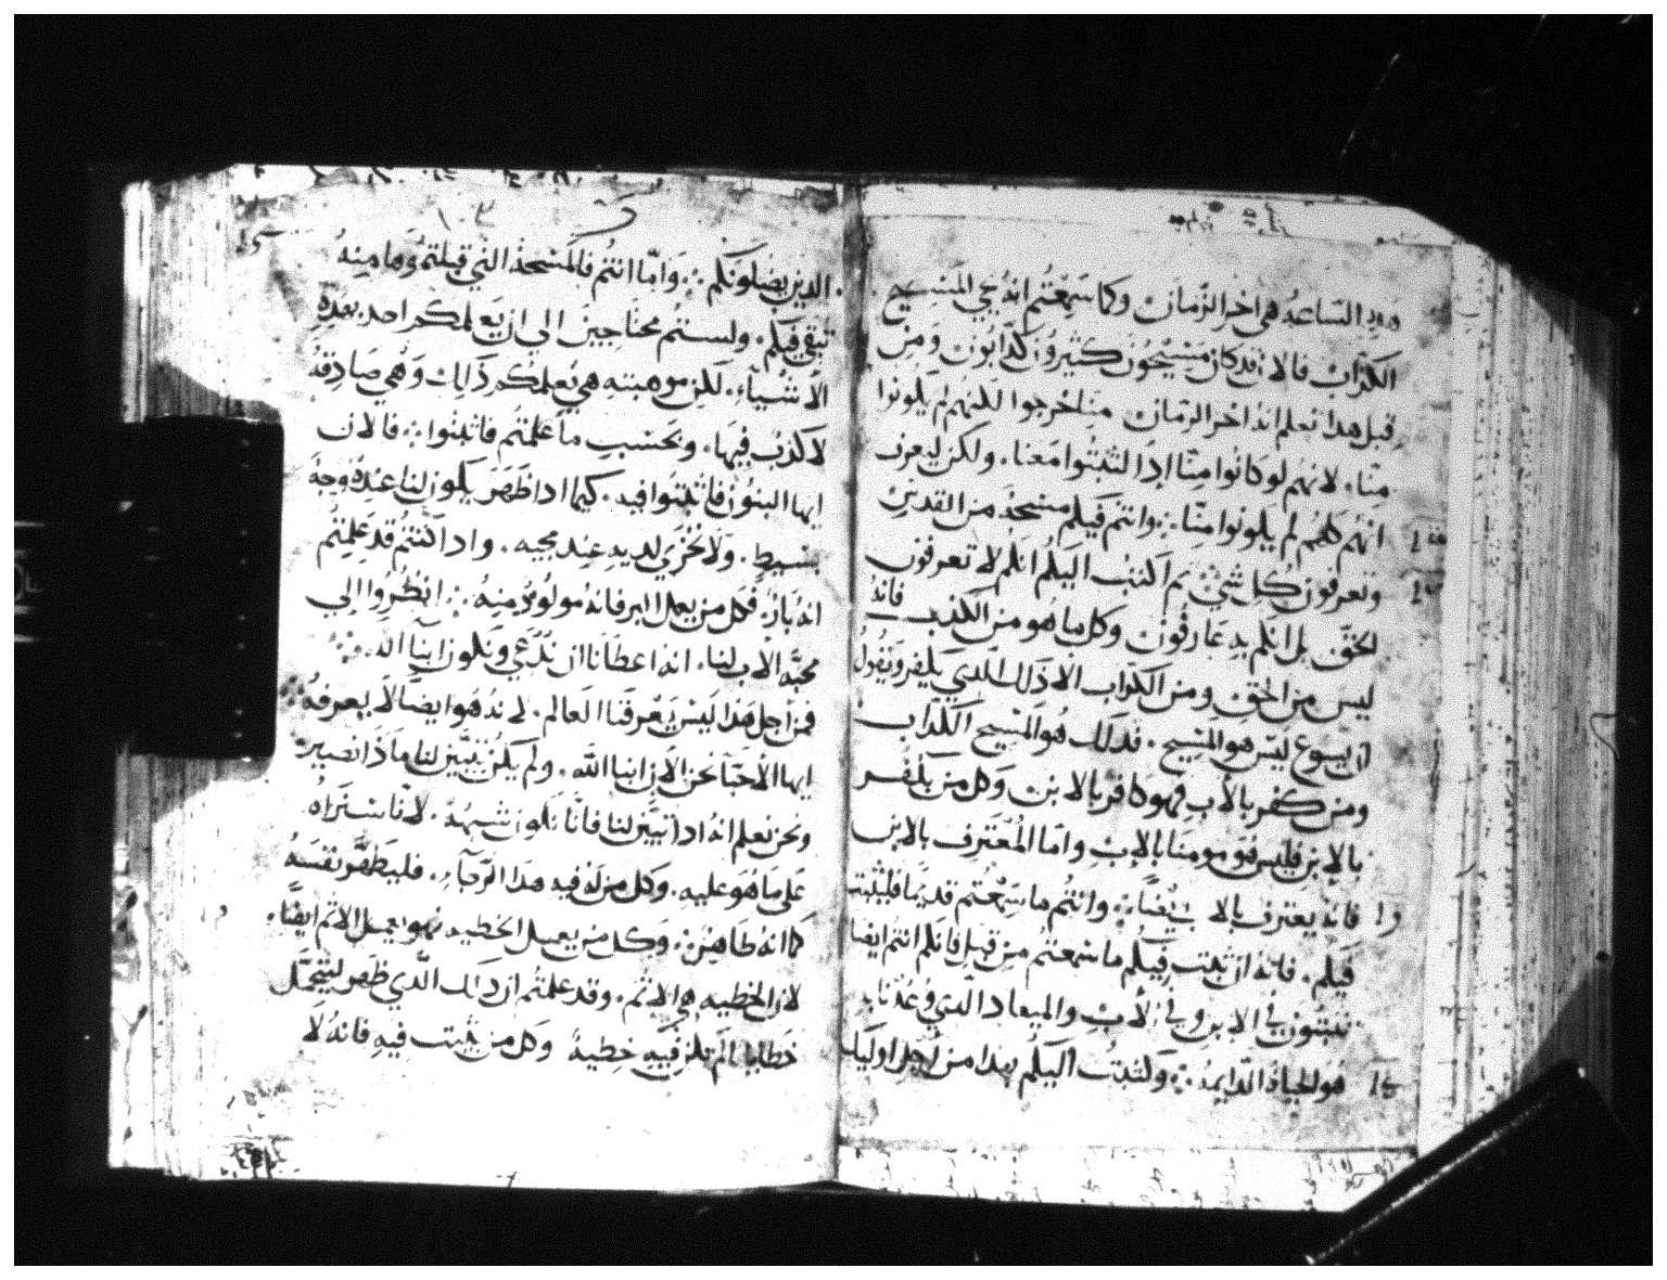 هوذا الساعه هي اخر الزمان وكما سمعتم انه يجي المسيح
الكذاب فالان قد كان مسيحيون كثيرون كذابون ومن
قبل هدا نعلم انه اخر الزمان منا خرجوا لكنهم لم يكونوا
منا. لانهم لو كانوا منا ادا لثبتوا معنا. ولكن ليعرف
انهم كلهم لم يكونوا منا. وانتم فيكم مسحه من القدوس
وتعرفون كل شي لم اكتب اليكم انكم لا تعرفون
الحق بل انكم به عارفون وكل ما هو من الكذب فانه
ليس من الحق ومن الكذاب الا ذلك الدي يكفر ويقول
ان يسوع ليس هو المسيح. فدلك هو المسيح الكداب
ومن كفر بالاب فهو كافر بالابن وكل من يكفر
بالابن فليس هو مومنا بالاب واما المعترف بالابن
فانه يعترف بالاب ايضا. وانتم ما سمعتم قديما فليثبت
فيكم. فانه ان ثبت فيكم ما سمعتم من قبل فانكم انتم ايضا
تثبتون في الابن وفي الاب والميعاد الدي وعدنا به
هو الحياة الدايمه. وكتبت اليكم بهدا من اجل اوليك
الدين يضلونكم. واما انتم فالمسحة التي قبلتموها منه
تبقي فيكم. ولستم محتاجين الي ان يعلمكم احد بهده
الاشياء. لكن موهبته هي تعلمكم دلك وهي صادقه
لا كدب فيها. وبحسب ما علمتم فاثبتوا. فالان
ايها البنون فاثبتوا فيه. كيما ادا ظهر يكون لنا عنده وجه
بسيط. ولا نخزي لديه عند مجيه. وادا كنتم قد علمتم
انه بار. فكل من يعمل البر فانه مولود منه. انظروا الي
محبة الاب لنا. انه اعطانا ان ندعي ونكون ابنا الله.
فمن اجل هدا ليس يعرفنا العالم. لانه هو ايضا لا يعرفه
ايها الاحبا نحن الان ابنا الله. ولم يكن تبين لنا مادا نصير
ونحن نعلم انه ادا تبين لنا فانا نكون شبهه. لانا سنراه
علي ما هو عليه. وكل من له فيه هدا الرجاء. فليطهر نفسه
كما انه طاهر. وكل من يعمل الخطيه فهو يعمل الاثم ايضا.
لان الخطيه هي الاثم. وقد علمتم ان داك الدي ظهر ليحمل
خطايانا لم تكن فيه خطية وكل من يثبت فيه فانه لا